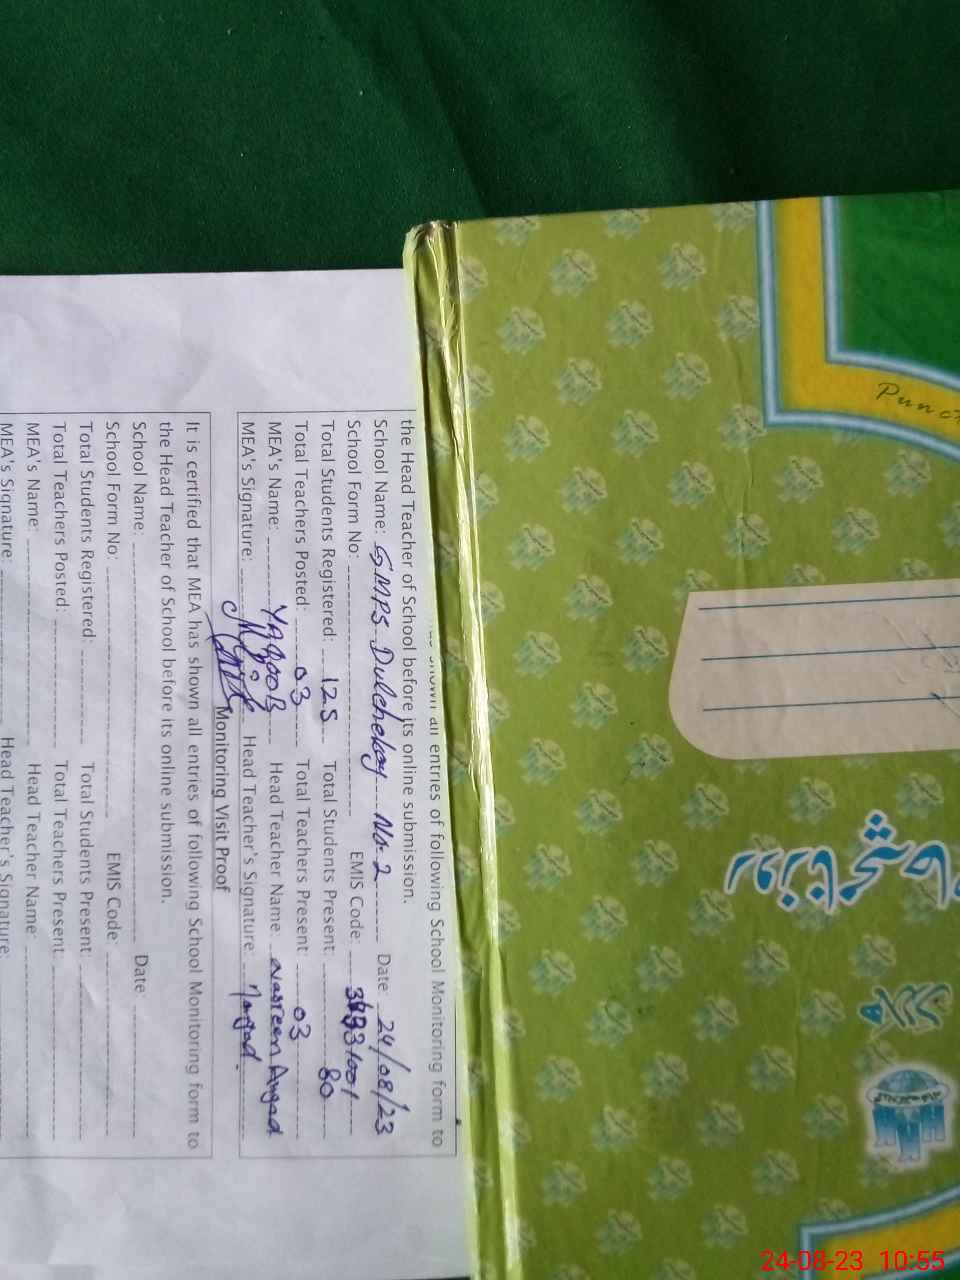 all entries of following School Monitoring form to
the Head Teacher of School before its online submission.
School Name: GMPS Dulchekay No.2 Date: 24/08/23
School Form No: EMIS Code:
Total Students Registered: 125 Total Students Present: 80
Total Teachers Posted: 03 Total Teachers Present: 03
MEA's Name: YAQOOB Head Teacher Name Nasreen Amjad
MEA's Signature: Head Teacher's Signature:
Monitoring Visit Proof
It is certified that MEA has shown all entries of following School Monitoring form to
the Head Teacher of School before its online submission.
School Name: Date
School Form No: EMIS Code:
Total Students Registered: Total Students Present:
Total Teachers Posted: Total Teachers Present
MEA's Name: Head Teacher Name:
MEA's Signature: Head Teacher's Signature:
روزنامچہ
24-08-23 10:55